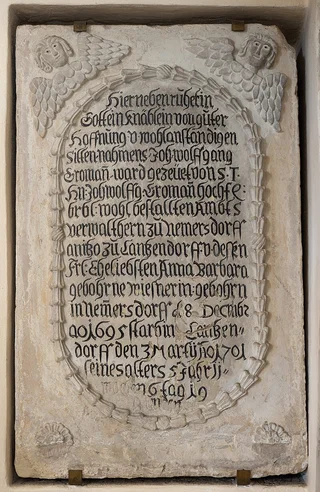 Hier neben ruhet in
Gott ein Knäblein von guter
Hoffnung v wohlanständigen
Sitten nahmens Joh: wolffgang
Groman̄. ward gezeuget von S. T.
Hn: Joh wolffg: Groman̄ hochf e:
brb: wohl bestallten Ambts
verwalthern zu nemersdorff
anitzo zu Lantzendorff v: dessen
Frl: Eheliebsten Anna Barbara
gebohrne wiesnerin: gebohrn
in nem̄ersdorff d. 8 Decembr
ao 1695 starb in Lantzen-
dorff den 3 Martij ao 1701
seines alters 5 Jahr 11-
6 tag 19